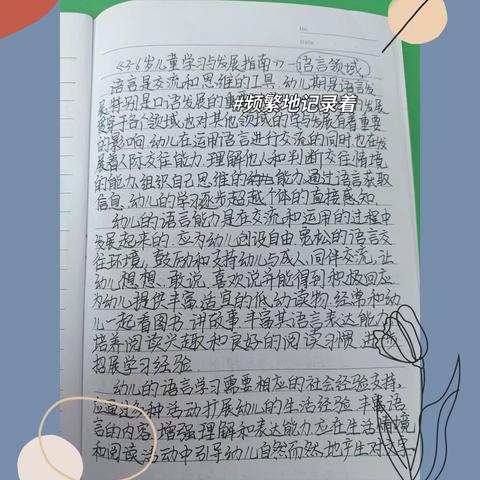 No.
Date
《3-6岁儿童学习与发展指南》—语言领域
语言是交流和思维的工具.幼儿期是语言发
展,特别是口语发展的重要
#频繁地记录着
的发展
贯穿于各个领域,也对其他领域的学习与发展有着重要
的影响.幼儿在运用语言进行交流的同时,也在发
展着人际交往能力.理解他人和判断交往情境
的能力.组织自己思维的能力.通过语言获取
信息.幼儿的学习逐步超越个体的直接感知.
幼儿的语言能力是在交流和运用的过程中
发展起来的.应为幼儿创设自由.宽松的语言交
往环境,鼓励和支持幼儿与成人.同伴交流,让
幼儿想想.敢说.喜欢说并能得到积极回应
为幼儿提供丰富.适宜的低幼读物.经常和幼
儿一起看图书.讲故事.丰富其语言表达能力
培养阅读兴趣和良好的阅读习惯.进
拓展学习经验.
幼儿的语言学习需要相应的社会经验支持,
应通过多种活动扩展幼儿的生活经验.丰富语
言的内容.增强理解和表达能力.应在生活情境
和阅读活动中引导幼儿自然而然地产生对文字